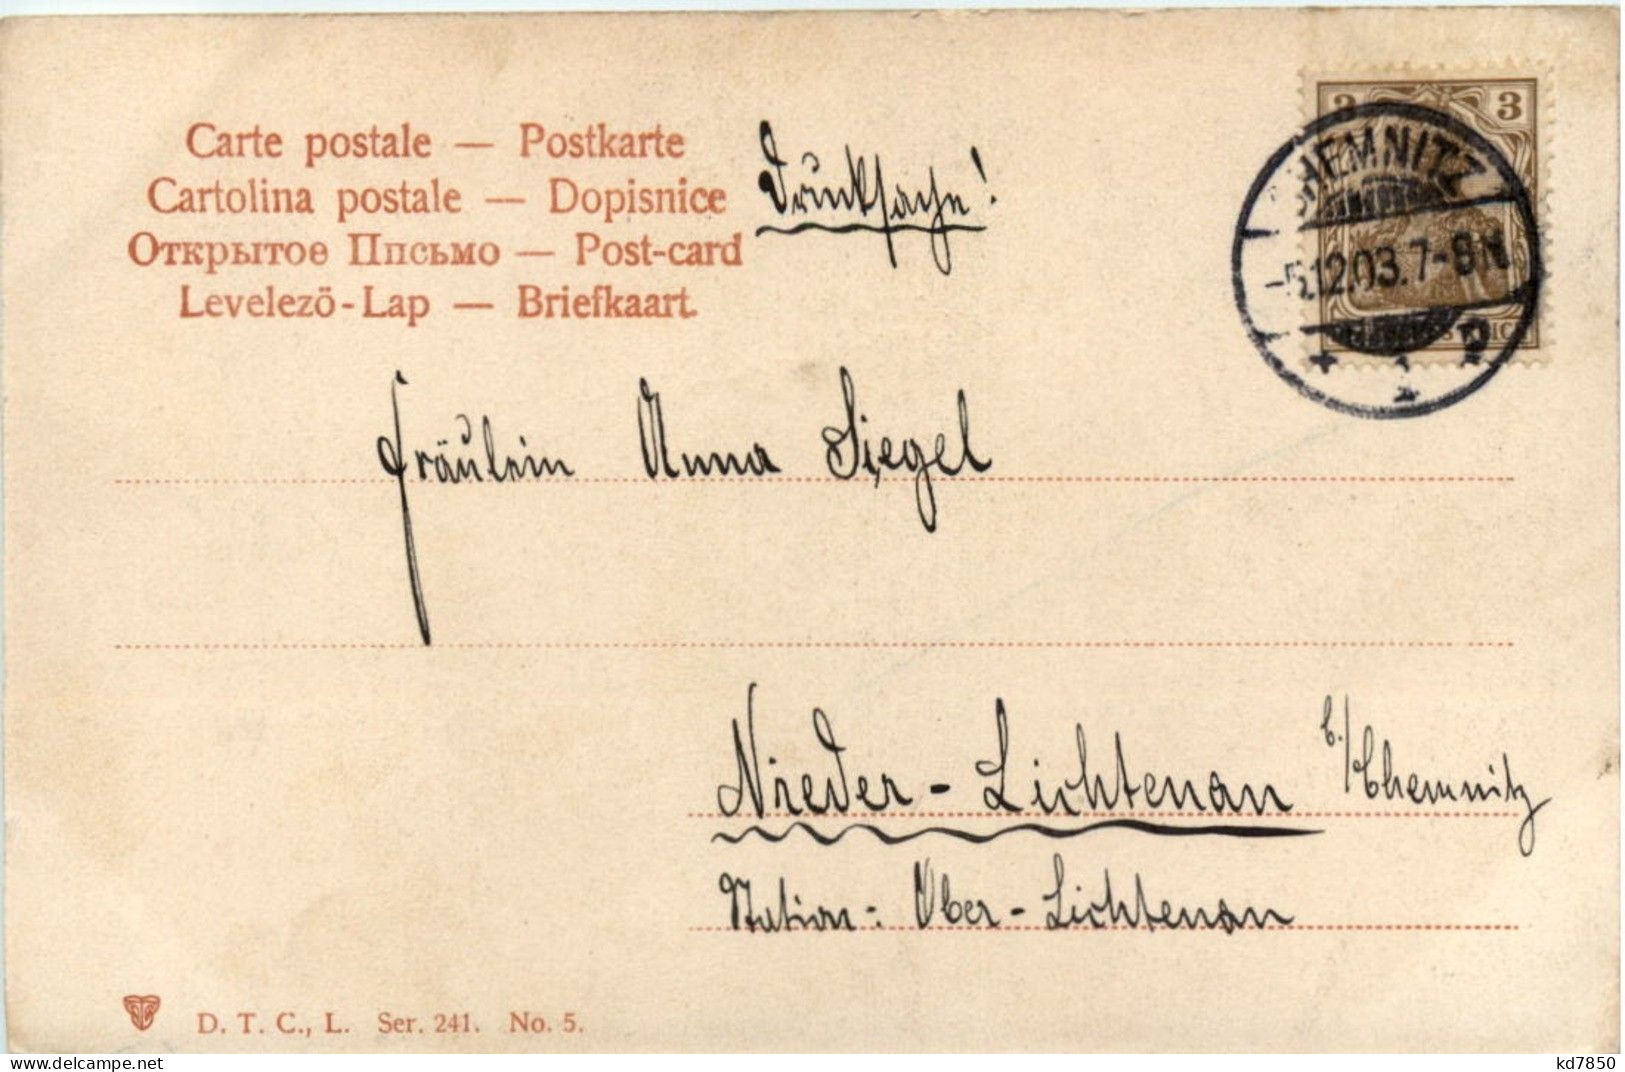 Carte postale — Postkarte
Cartolina postale — Dopisnice
Открытое Ппсьмо — Post-card
Levelezö-Lap — Briefkaart.
Drucksache!
3 3
CHEMNITZ
-5.12.03.7-8N.
* 1 *
Fräulein Anna Siegel
Nieder-Lichtenau b./Chemnitz
Station: Ober-Lichtenau
D. T. C., L. Ser. 241. No. 5.
kd7850